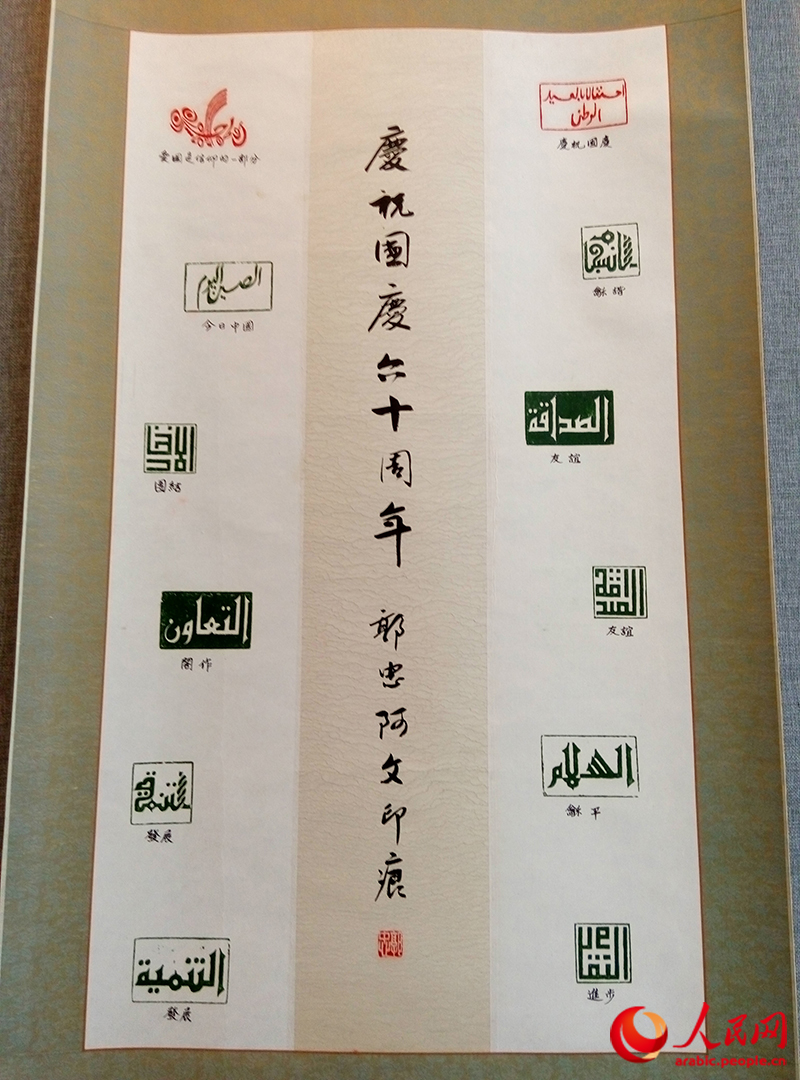 احتفالا بالعيد
الوطني
慶祝國慶
龢諧
الصداقة
友誼
الصداقة
友誼
السلام
龢平
التقدم
進步
慶祝國慶六十周年 郭忠阿文印痕
愛國是信仰的一部分
الصين اليوم
今日中國
الاتحاد
團結
التعاون
閤作
التنمية
發展
التنمية
發展
人民网
arabic.people.cn